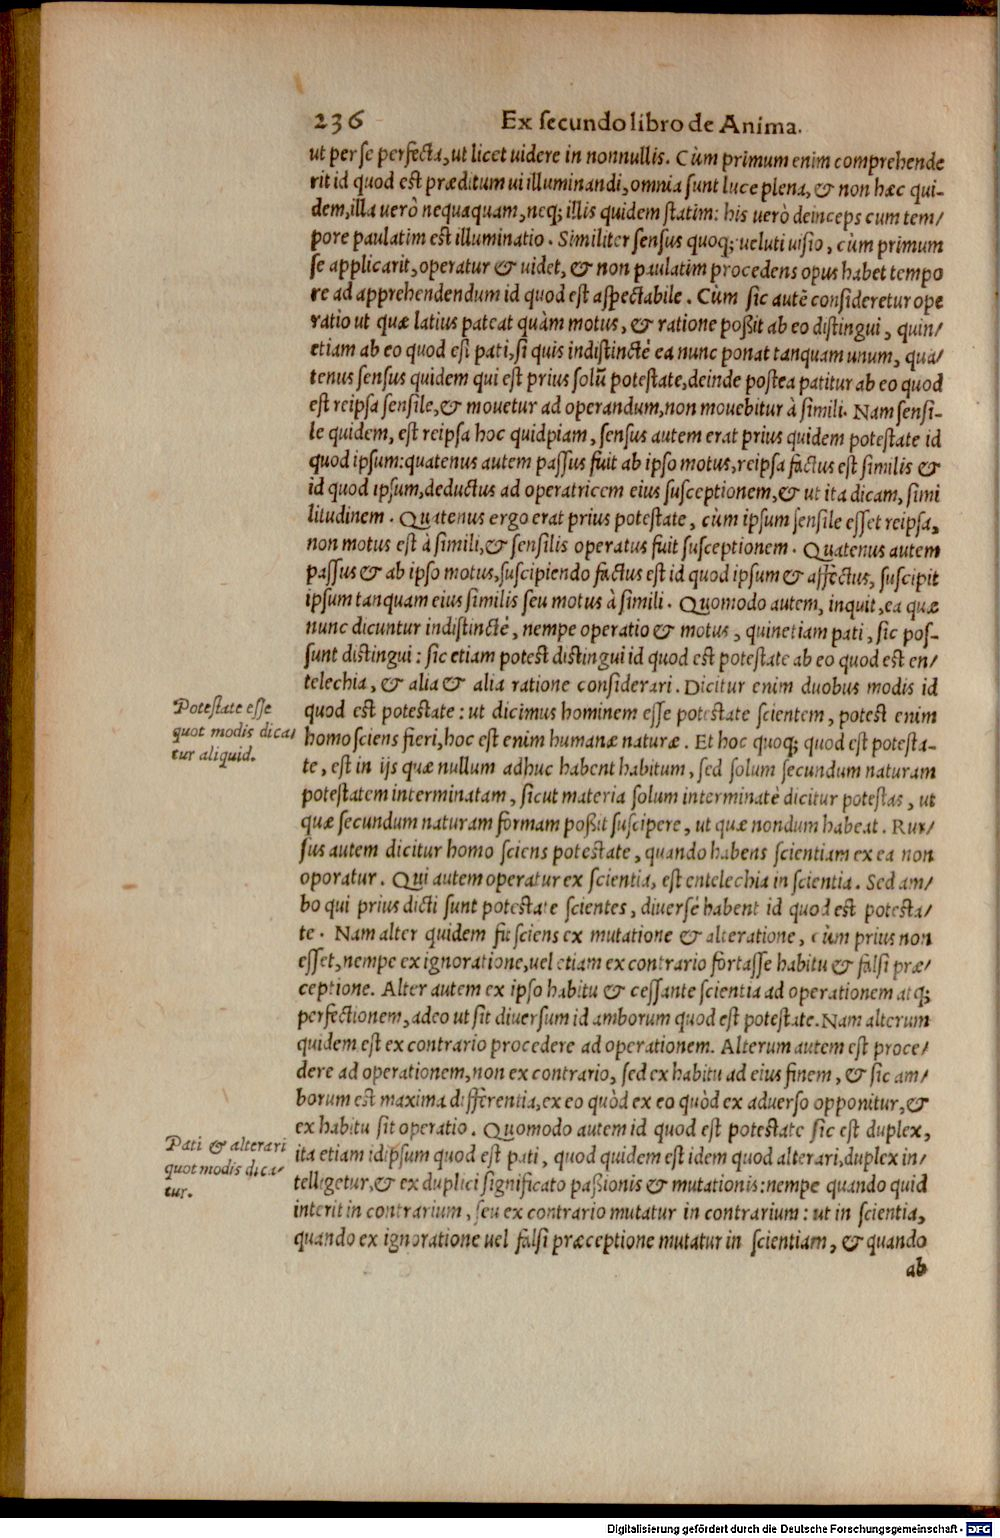 236 Ex secundo libro de Anima.
ut per se perfecta, ut licet uidere in nonnullis. Cùm primum enim comprehende
rit id quod est præditum ui illuminandi, omnia sunt luce plena, & non hæc qui-
dem, illa uerò nequaquam, neq; illis quidem statim: his uerò deinceps cum tem/
pore paulatim est illuminatio. Similiter sensus quoq; ueluti uisio, cùm primum
se applicarit, operatur & uidet, & non paulatim procedens opus habet tempo
re ad apprehendendum id quod est aspectabile. Cùm sic autē consideretur ope
ratio ut quæ latius pateat quàm motus, & ratione poßit ab eo distingui, quin/
etiam ab eo quod est pati, si quis indistinctè ea nunc ponat tanquam unum, qua/
tenus sensus quidem qui est prius solū potestate, deinde postea patitur ab eo quod
est reipsa sensile, & mouetur ad operandum, non mouebitur à simili. Nam sensi-
le quidem, est reipsa hoc quidpiam, sensus autem erat prius quidem potestate id
quod ipsum: quatenus autem passus fuit ab ipso motus, reipsa factus est similis &
id quod ipsum, deductus ad operatricem eius susceptionem, & ut ita dicam, simi
litudinem. Quatenus ergo erat prius potestate, cùm ipsum sensile esset reipsa,
non motus est à simili, & sensilis operatus fuit susceptionem. Quatenus autem
passus & ab ipso motus, suscipiendo factus est id quod ipsum & affectus, suscipit
ipsum tanquam eius similis seu motus à simili. Quomodo autem, inquit, ea quæ
nunc dicuntur indistinctè, nempe operatio & motus, quinetiam pati, sic pos-
sunt distingui: sic etiam potest distingui id quod est potestate ab eo quod est en/
telechia, & alia & alia ratione considerari. Dicitur enim duobus modis id
Potestate esse
quot modis dica/
tur aliquid.
quod est potestate: ut dicimus hominem esse potestate scientem, potest enim
homo sciens fieri, hoc est enim humanæ naturæ. Et hoc quoq; quod est potesta-
te, est in ijs quæ nullum adhuc habent habitum, sed solum secundum naturam
potestatem interminatam, sicut materia solum interminatè dicitur potestas, ut
quæ secundum naturam formam poßit suscipere, ut quæ nondum habeat. Rur/
sus autem dicitur homo sciens potestate, quando habens scientiam ex ea non
oporatur. Qui autem operatur ex scientia, est entelechia in scientia. Sed am/
bo qui prius dicti sunt potestate scientes, diuersè habent id quod est potesta/
te. Nam alter quidem fit sciens ex mutatione & alteratione, cùm prius non
esset, nempe ex ignoratione, uel etiam ex contrario fortasse habitu & falsi præ/
ceptione. Alter autem ex ipso habitu & cessante scientia ad operationem atq;
perfectionem, adeo ut sit diuersum id amborum quod est potestate. Nam alterum
quidem est ex contrario procedere ad operationem. Alterum autem est proce/
dere ad operationem, non ex contrario, sed ex habitu ad eius finem, & sic am/
borum est maxima differentia, ex eo quòd ex eo quòd ex aduerso opponitur, &
ex habitu sit operatio. Quomodo autem id quod est potestate sic est duplex,
Pati & alterari
quot modis dica/
tur.
ita etiam id ipsum quod est pati, quod quidem est idem quod alterari, duplex in/
tellegetur, & ex duplici significato paßionis & mutationis: nempe quando quid
interit in contrarium, seu ex contrario mutatur in contrarium: ut in scientia,
quando ex ignoratione uel falsi præceptione mutatur in scientiam, & quando
ab
Digitalisierung gefördert durch die Deutsche Forschungsgemeinschaft - DFG